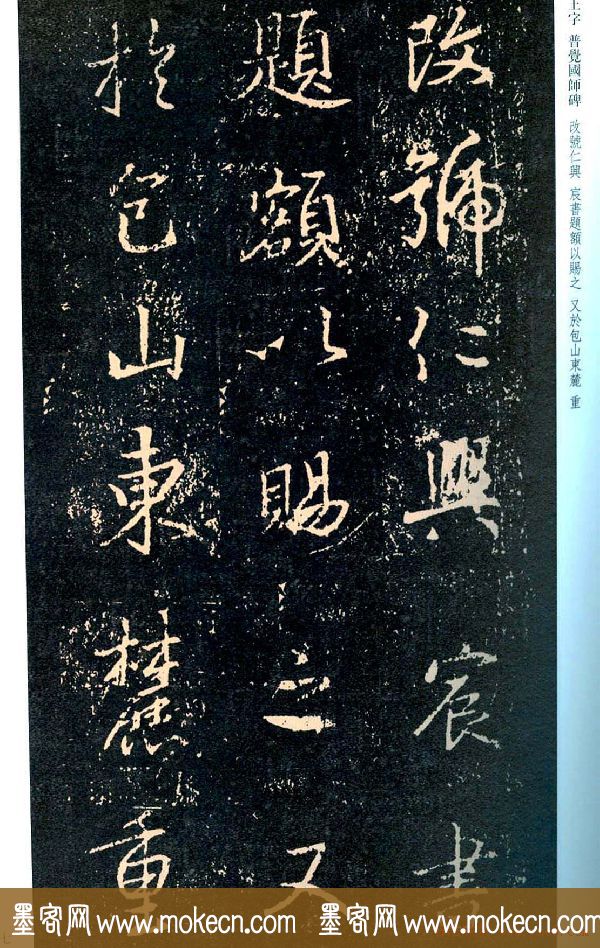 改號仁興宸書
題額以賜之又
於包山東麓重
王字 普覺國師碑 改號仁興 宸書題額以賜之 又於包山東麓 重
墨客网 www.mokecn.com 墨客网 www.mokecn.com